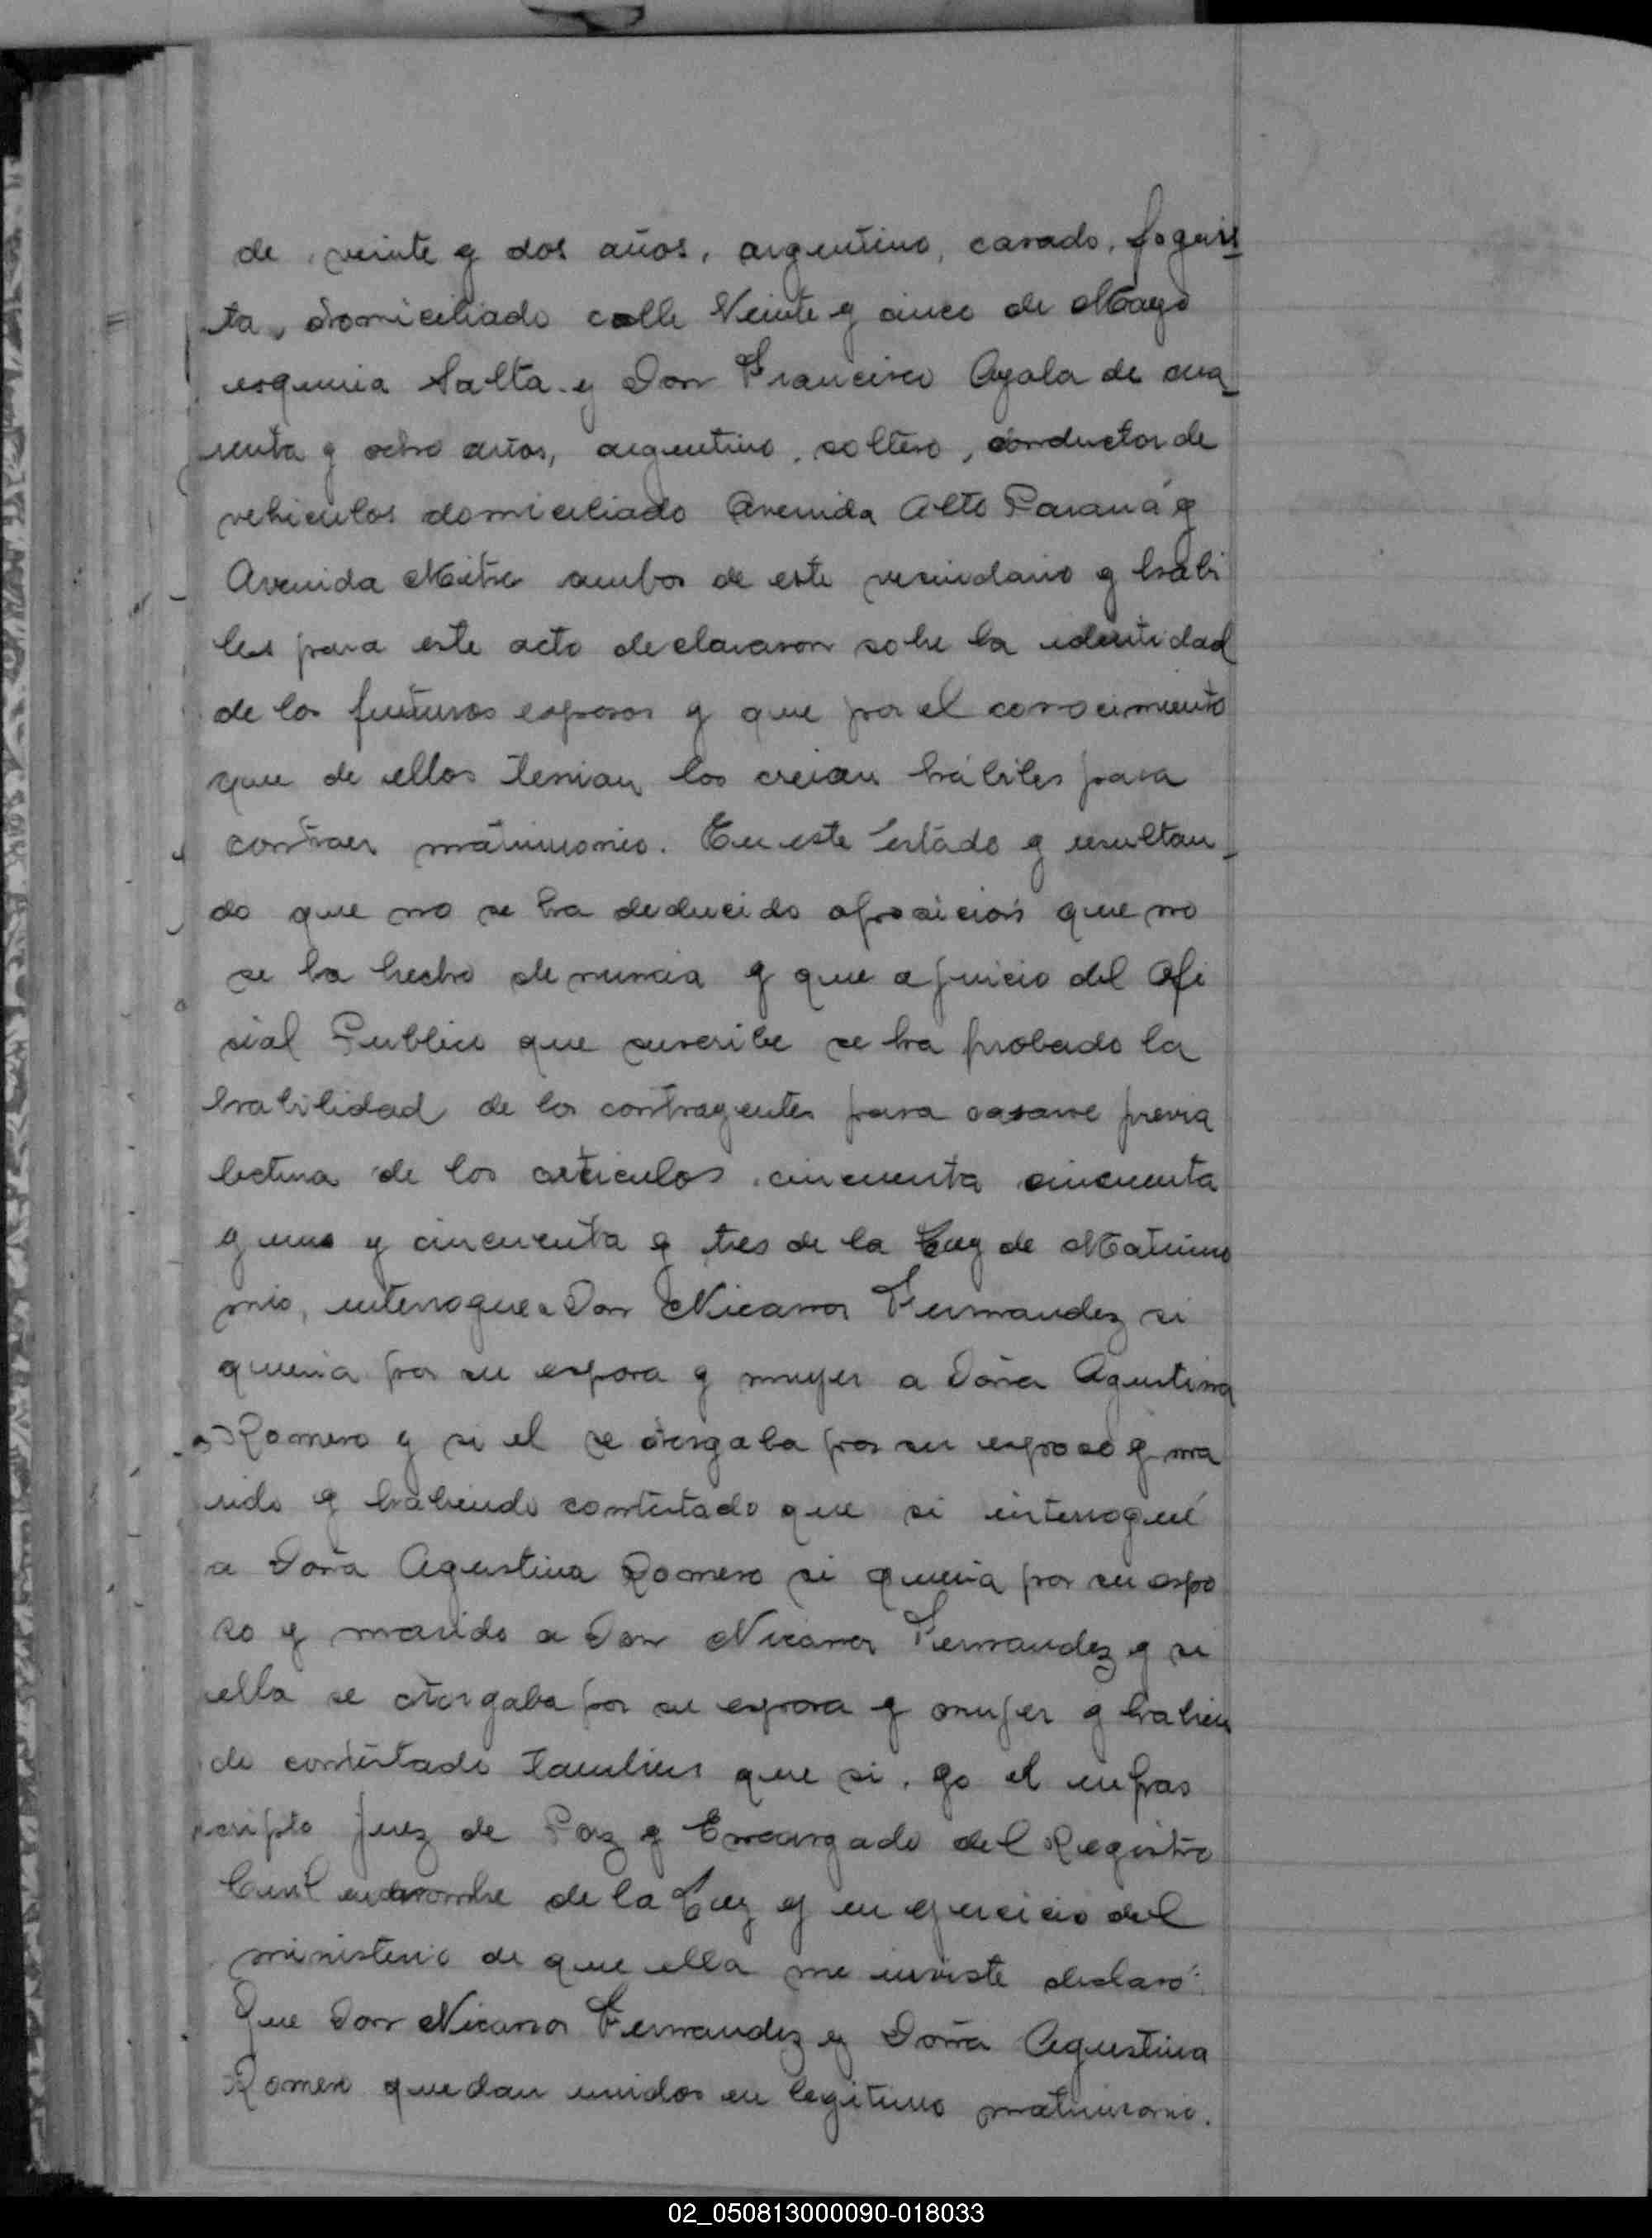 de veinte y dos años, argentino, casado, foguis_
ta, domiciliado calle Veinte y cinco de Mayo
esquina Salta y Don Francisco Ayala de cua_
renta y ocho años, argentino, soltero, conductor de
vehiculos domiciliado Avenida Alto Paraná y
Avenida Mitre ambos de este vecindario y habi
les para este acto declararon sobre la identidad
de los futuros esposos y que por el conocimiento
que de ellos tenian los creian hábiles para
contraer matrimonio. En este estado y resultan_
do que no se ha deducido oposición que no
se ha hecho denuncia y que a juicio del Ofi
cial Publico que suscribe se ha probado la
habilidad de los contrayentes para casarse previa
lectura de los articulos cincuenta cincuenta
y uno y cincuenta y tres de la Ley de Matrimo
nio, interrogue a Don Nicanor Fernandez si
queria por su esposa y muyer a Doña Agustina
Romero y si el se otorgaba por su esposo y ma
rido y habiendo contestado que si interrogué
a Doña Agustina Romero si queria por su espo
so y marido a Don Nicanor Fernandez y si
ella se otorgaba por su esposa y mujer y habien
do contestado tambien que si, yo el infras
cripto Juez de Paz y Encargado del Registro
Civil en nombre de la Ley y en ejercicio del
ministerio de que ella me inviste declaró:
Que Don Nicanor Fernandez y Doña Agustina
Romero quedan unidos en legitimo matrimonio.
02_050813000090-018033